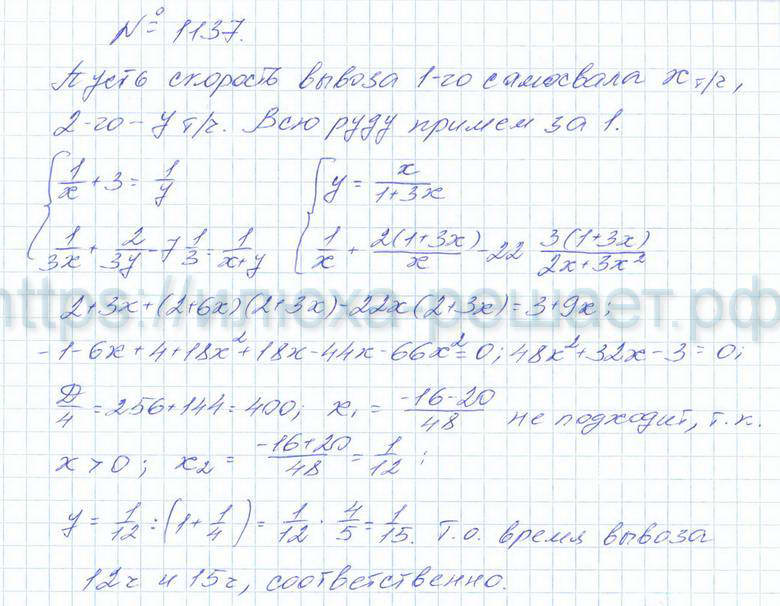 № 1137.
Пусть скорость вывоза 1-го самосвала x т/ч,
2-го – y т/ч. Всю руду примем за 1.
{ 1/x + 3 = 1/y { y = x/(1+3x)
1/3x + 2/3y - 7 1/3 = 1/(x+y) 1/x + 2(1+3x)/x - 22 3(1+3x)/(2x+3x²)
https://илюха-решает.рф
2+3x+(2+6x)(2+3x)-22x(2+3x)=3+9x;
-1-6x+4+18x²+18x-44x-66x²=0; 48x²+32x-3=0;
D/4 = 256+144=400; x₁ = (-16-20)/48 не подходит, т.к.
x>0; x₂ = (-16+20)/48 = 1/12;
y = 1/12 : (1+1/4) = 1/12 · 4/5 = 1/15. Т.о. время вывоза
12ч и 15ч, соответственно.